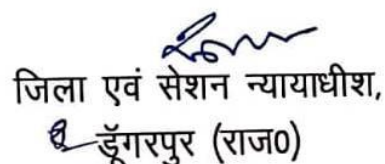 जिला एवं सेशन न्यायाधीश,
डूँगरपुर (राज0)